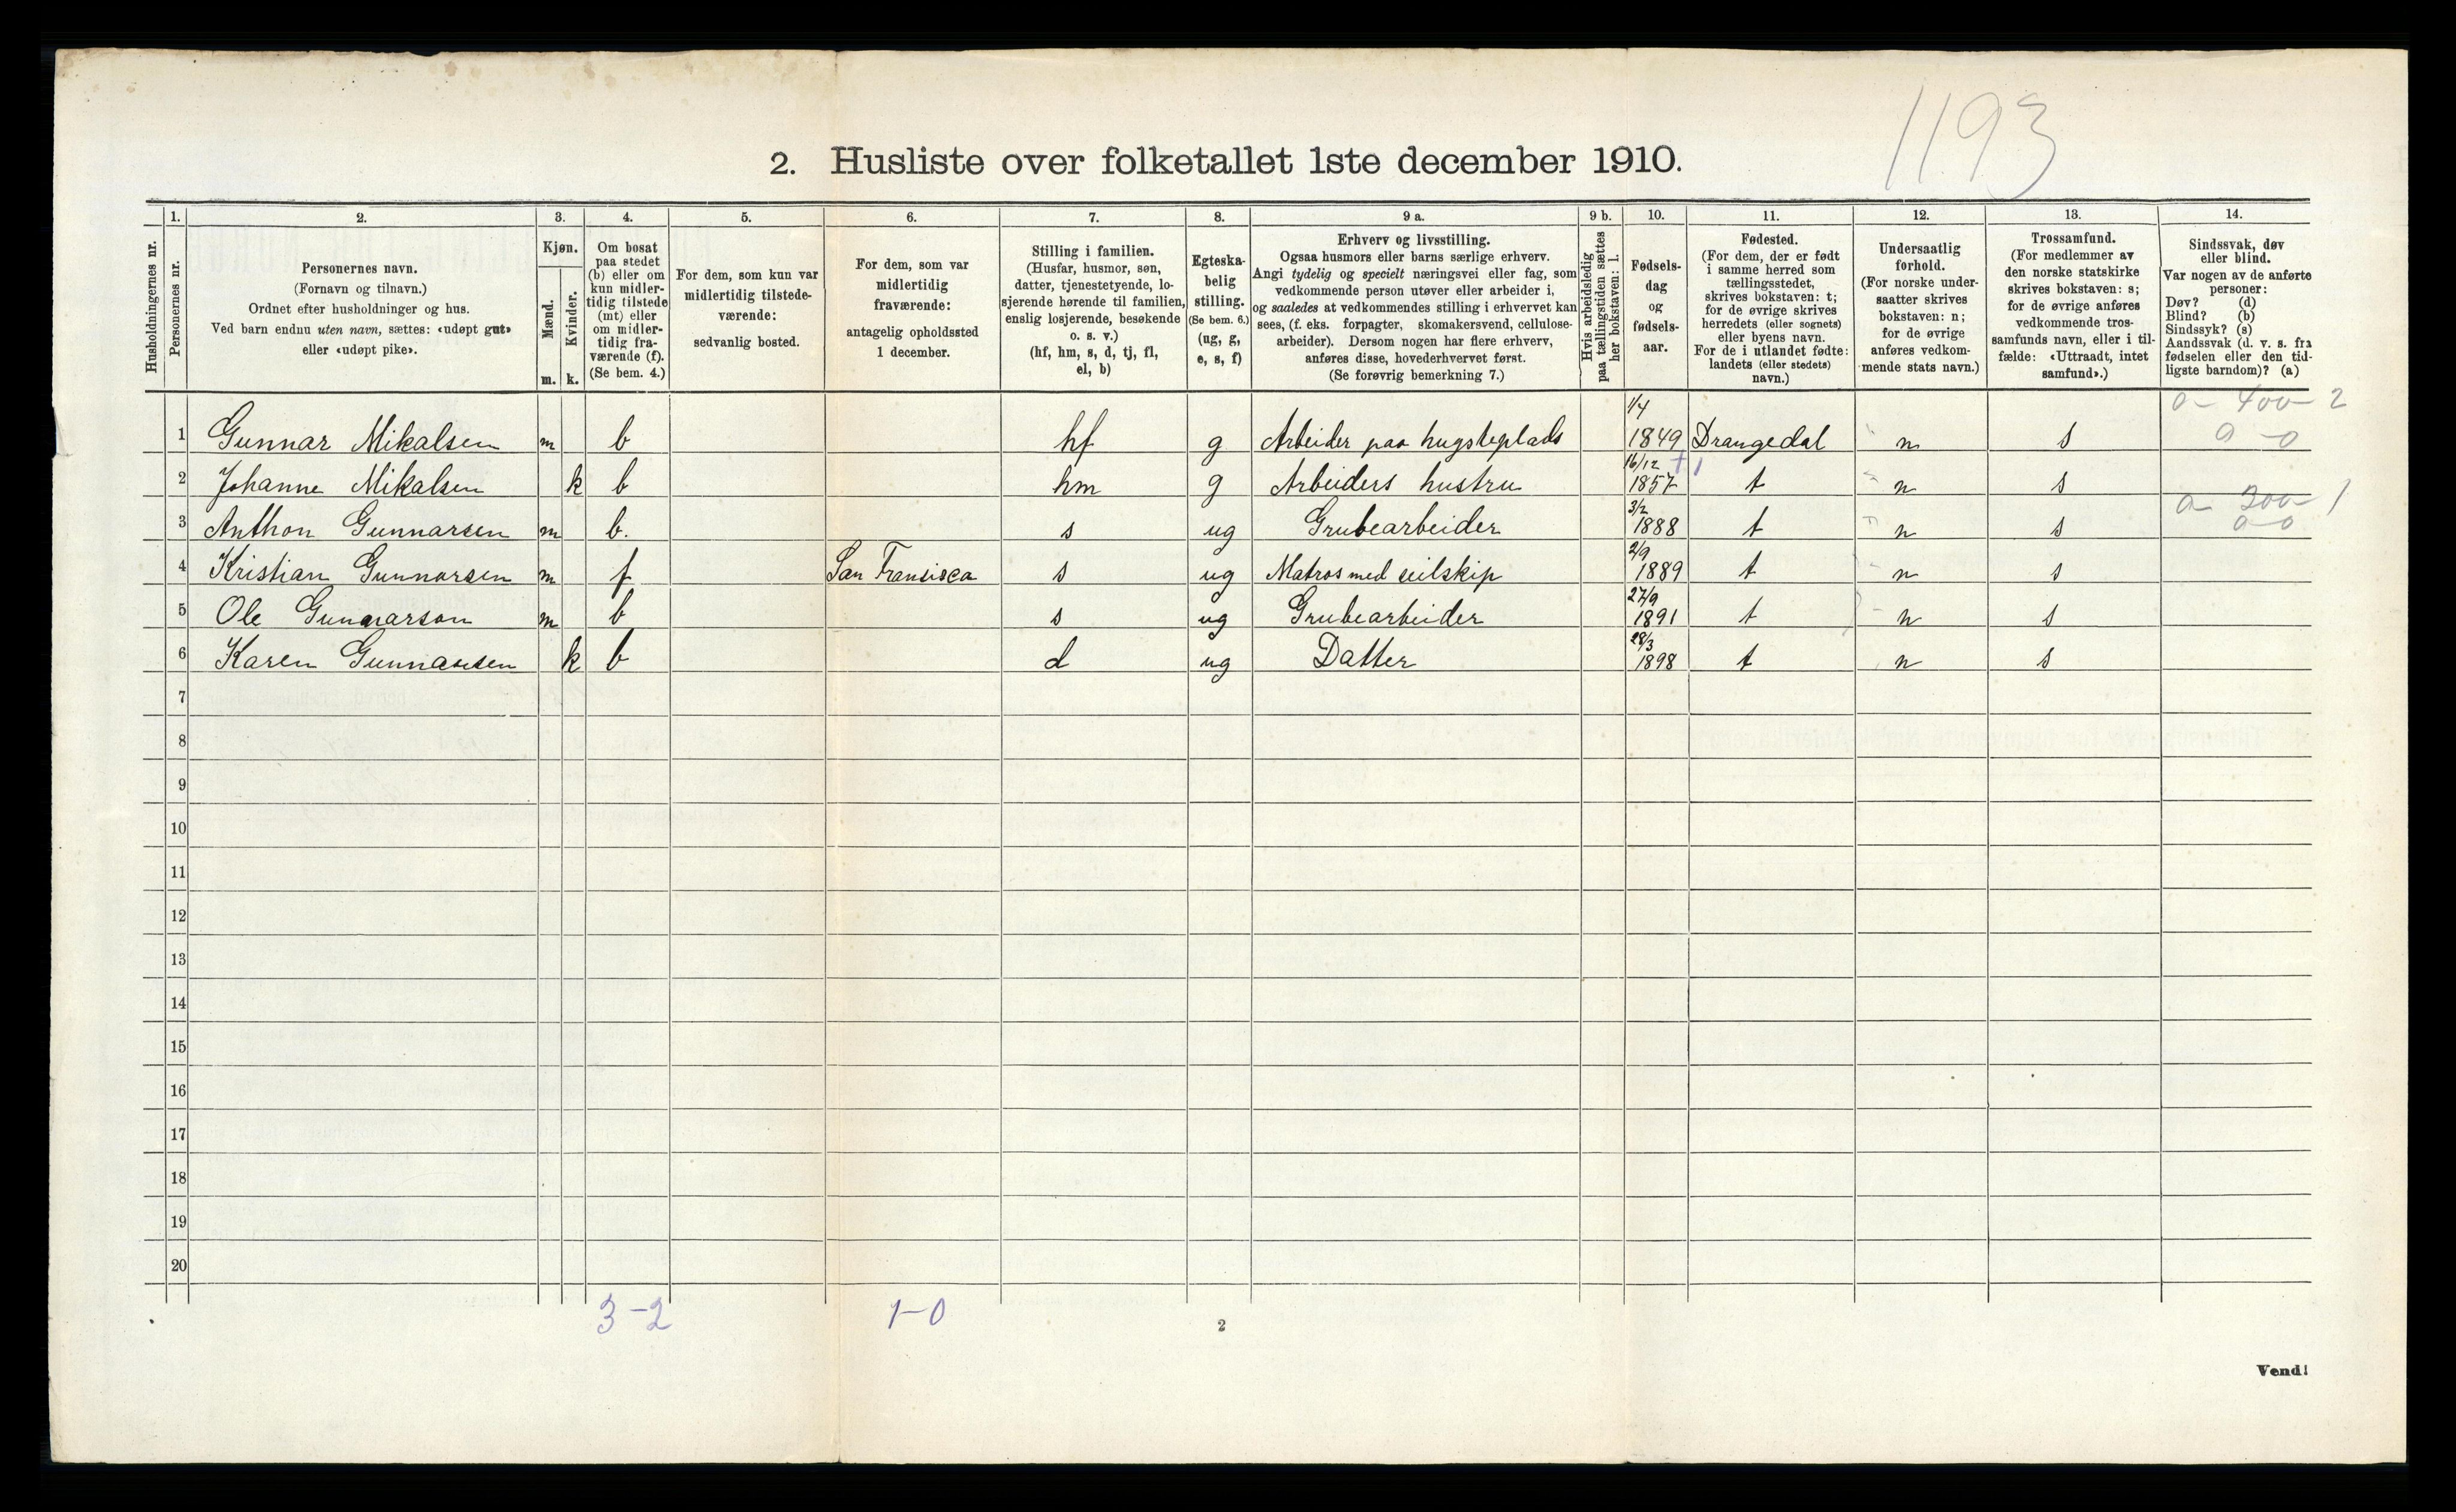 1193
2. Husliste over folketallet 1ste december 1910.
Husholdningernes nr.
1. Personernes nr.
2. Personernes navn. (Fornavn og tilnavn.) Ordnet efter husholdninger og hus. Ved barn endnu uten navn, sættes: «udøpt gut» eller «udøpt pike».
3. Kjøn. Mænd. m. Kvinder. k.
4. Om bosat paa stedet (b) eller om kun midlertidig tilstede (mt) eller om midlertidig fraværende (f). (Se bem. 4.)
5. For dem, som kun var midlertidig tilstedeværende: sedvanlig bosted.
6. For dem, som var midlertidig fraværende: antagelig opholdssted 1 december.
7. Stilling i familien. (Husfar, husmor, søn, datter, tjenestetyende, losjerende hørende til familien, enslig losjerende, besøkende o. s. v.) (hf, hm, s, d, tj, fl, el, b)
8. Egteskabelig stilling. (Se bem. 6.) (ug, g, e, s, f)
9 a. Erhverv og livsstilling. Ogsaa husmors eller barns særlige erhverv. Angi tydelig og specielt næringsvei eller fag, som vedkommende person utøver eller arbeider i, og saaledes at vedkommendes stilling i erhvervet kan sees, (f. eks. forpagter, skomakersvend, cellulosearbeider). Dersom nogen har flere erhverv, anføres disse, hovederhvervet først. (Se forøvrig bemerkning 7.)
9 b. Hvis arbeidsledig paa tællingstiden sættes her bokstaven: l.
10. Fødselsdag og fødselsaar.
11. Fødested. (For dem, der er født i samme herred som tællingsstedet, skrives bokstaven: t; for de øvrige skrives herredets (eller sognets) eller byens navn. For de i utlandet fødte: landets (eller stedets) navn.)
12. Undersaatlig forhold. (For norske undersaatter skrives bokstaven: n; for de øvrige anføres vedkommende stats navn.)
13. Trossamfund. (For medlemmer av den norske statskirke skrives bokstaven: s; for de øvrige anføres vedkommende trossamfunds navn, eller i tilfælde: «Uttraadt, intet samfund».)
14. Sindssvak, døv eller blind. Var nogen av de anførte personer: Døv? (d) Blind? (b) Sindssyk? (s) Aandssvak (d. v. s. fra fødselen eller den tidligste barndom)? (a)
0 - 400 - 2
1 Gunnar Mikalsen m b hf g Arbeider paa hugsteplads 1/4 1849 Drangedal n s 0 - 0
2 Johanne Mikalsen k b hm g Arbeiders hustru 16/12 1857 t n s
0 - 300 - 1
3 Anthon Gunnarsen m b. s ug Grubearbeider 3/2 1888 t n s 0 - 0
4 Kristian Gunnarsen m f San Fransisca s ug Matros med seilskip 2/9 1889 t n s
5 Ole Gunnarson m b s ug Grubearbeider 27/9 1891 t n s
6 Karen Gunnarsen k b d ug Datter 28/3 1898 t n s
7
8
9
10
11
12
13
14
15
16
17
18
19
20
3-2 1-0
2
Vend!